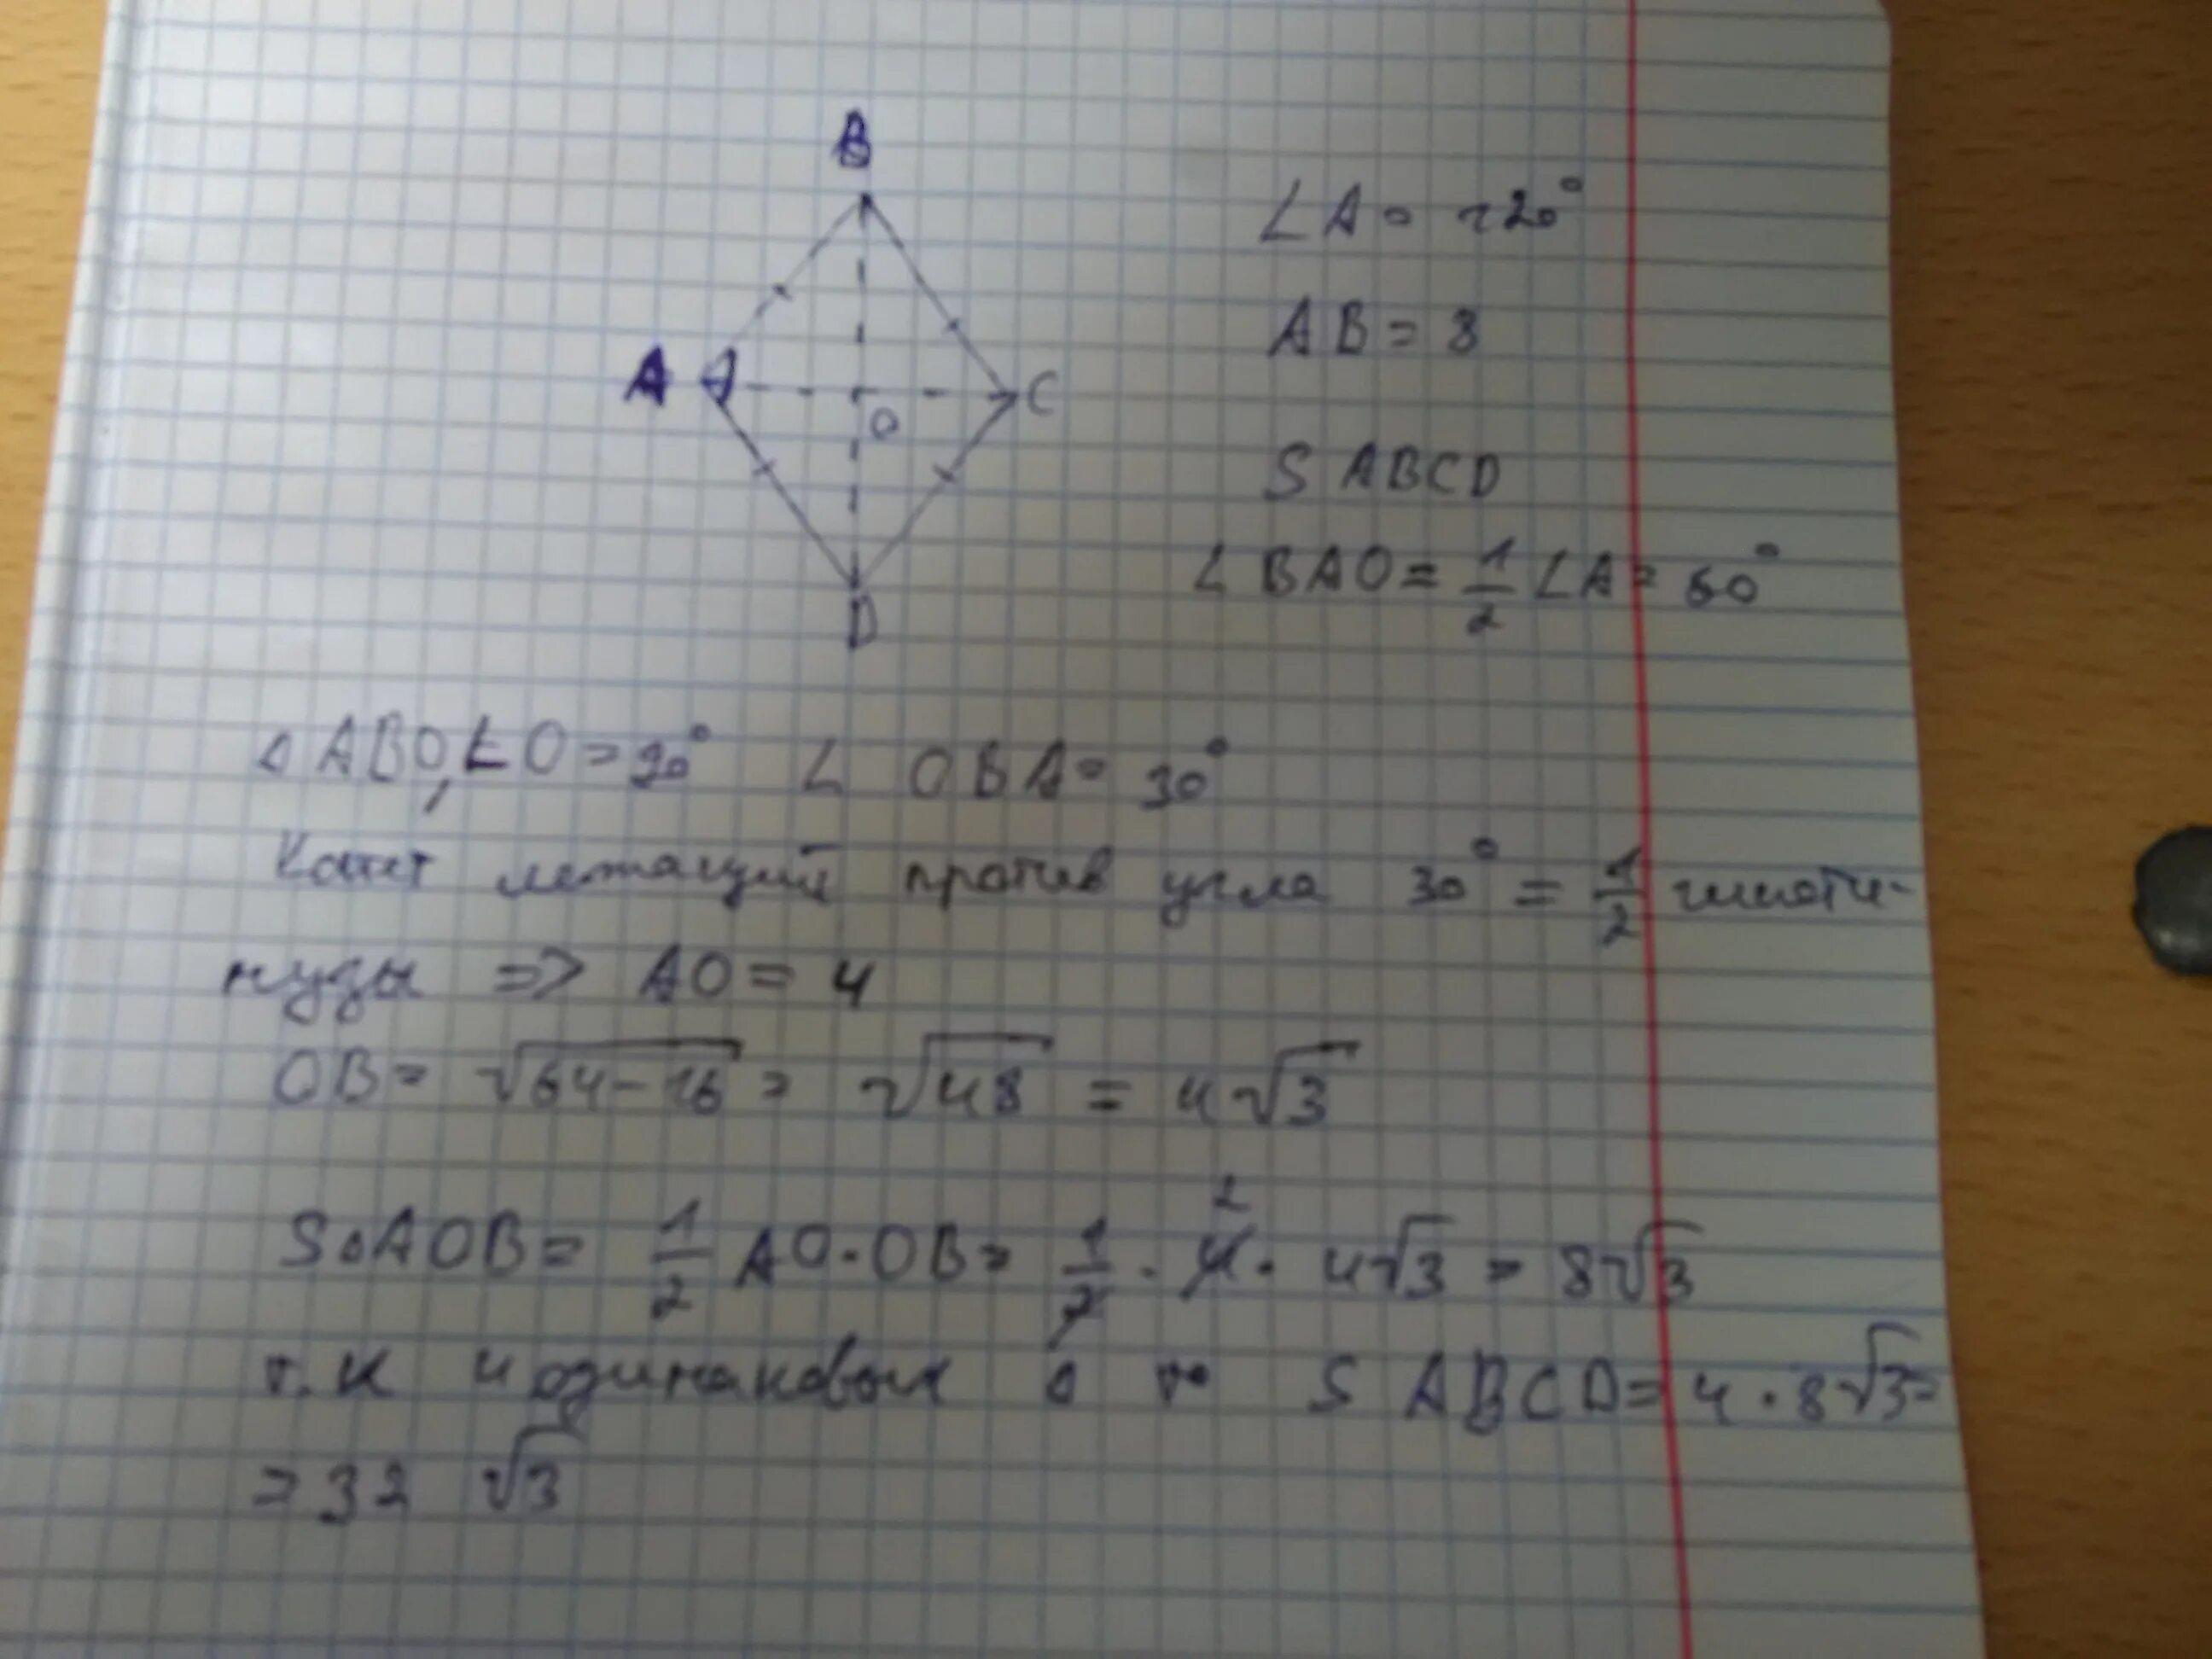 B
∠A = 120°
AB = 8
A
C
O
S ABCD
∠BAO = 1/2 ∠A = 60°
D
△ABO, ∠O = 90° ∠ OBA = 30°
Катет лежащий против угла 30° = 1/2 гипоте-
нузы => AO = 4
OB = √64-16 = √48 = 4√3
S△AOB = 1/2 AO · OB = 1/2 · 4 2 · 4√3 = 8√3
т.к 4 одинаковых △ то S ABCD = 4 · 8√3 =
= 32 √3